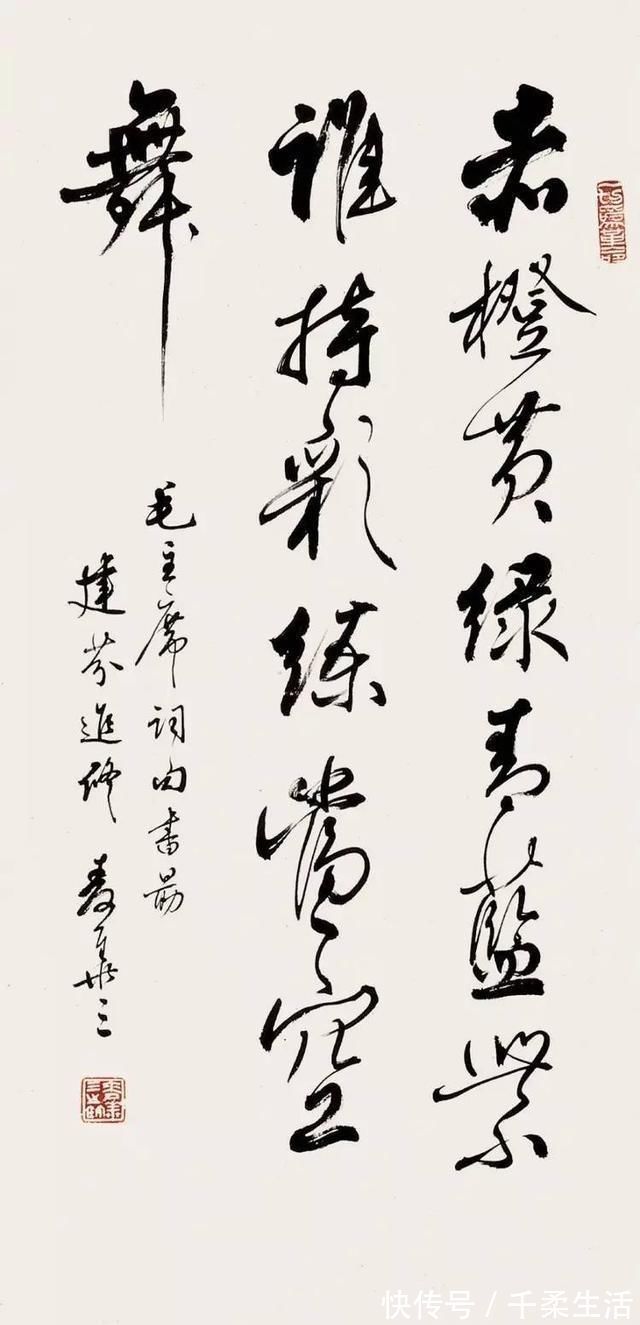 赤橙黄绿青蓝紫
谁持彩练当空
舞
毛主席词句书勗
建芬进修 寿

快传号／千柔生活